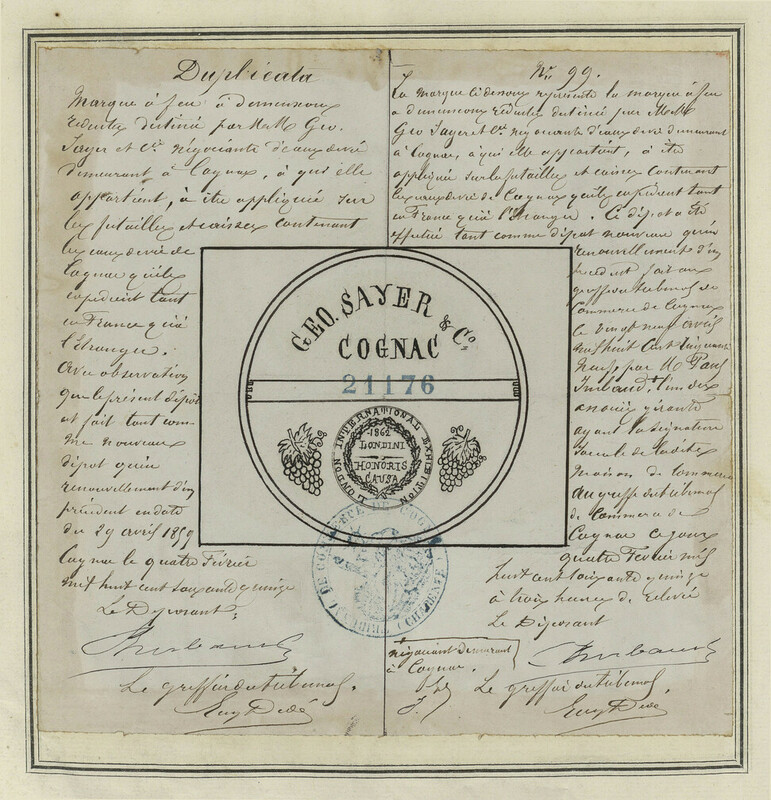 Duplicata
Marque à feu à dimensions
réduites destiné par MM Geo.
Sayer et Cie négociants d'eaux de vie
demeurant à Cognac, à qui elle
appartient, à être appliquée sur
les futailles et caisses contenant
les eaux de vie de
Cognac qu'ils
expédient tant
en France qu'à
l'étranger.
Avec observation
que le présent dépôt
est fait tant com-
me nouveau
dépôt qu'en
renouvellement d'un
précédent en date
du 29 avril 1859
Cognac le quatre Février
mil huit cent soixante quinze
Le Déposant;
Le greffier du tribunal,
No 99.
La marque ci dessous représente la marque à feu
à dimensions réduites destiné par MM
Geo Sayer et Cie négociants d'eaux de vie demeurant
à Cognac, à qui elle appartient, à être
appliquée sur les futailles et caisses contenant
les eaux de vie de Cognac qu'ils expédient tant
en France qu'à l'étranger. Ce dépôt a été
effectué tant comme dépôt nouveau qu'en
renouvellement d'un
précédent fait au
greffe du tribunal de
Commerce de Cognac
le vingt neuf avril
mil huit cent cinquante
neuf, par M Paul
Imbaud, l'un des
associés gérants
ayant la signature
sociale de ladite
maison de commerce
au greffe du tribunal
de Commerce de
Cognac ce jour
quatre Février mil
huit cent soixante quinze
à trois heures de relevé
Le Déposant
négociant demeurant
à Cognac.
Le greffier du tribunal,
GEO. SAYER & Co.
COGNAC
21176
LONDON INTERNATIONAL EXHIBITION
1862
LONDINI
HONORIS
CAUSA